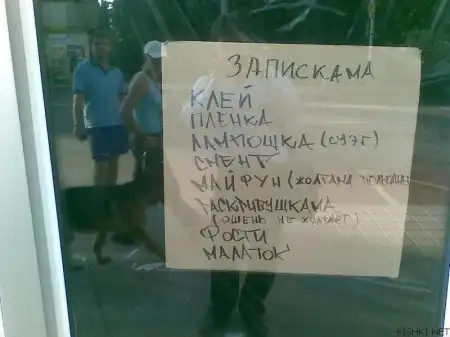 ЗАПИСКАМА
КЛЕЙ
ПЛЕНКА
ЛАМПОШКА (СУЭТ)
СМЕНТ
МАЙФУН (ЖОЛТАЯ
РАСКРИВУШКАМА
(ОШЕНЬ НЕ ХВАТАЕТ)
ФОСТИ
МАЛАТОК
FISHKI.NET